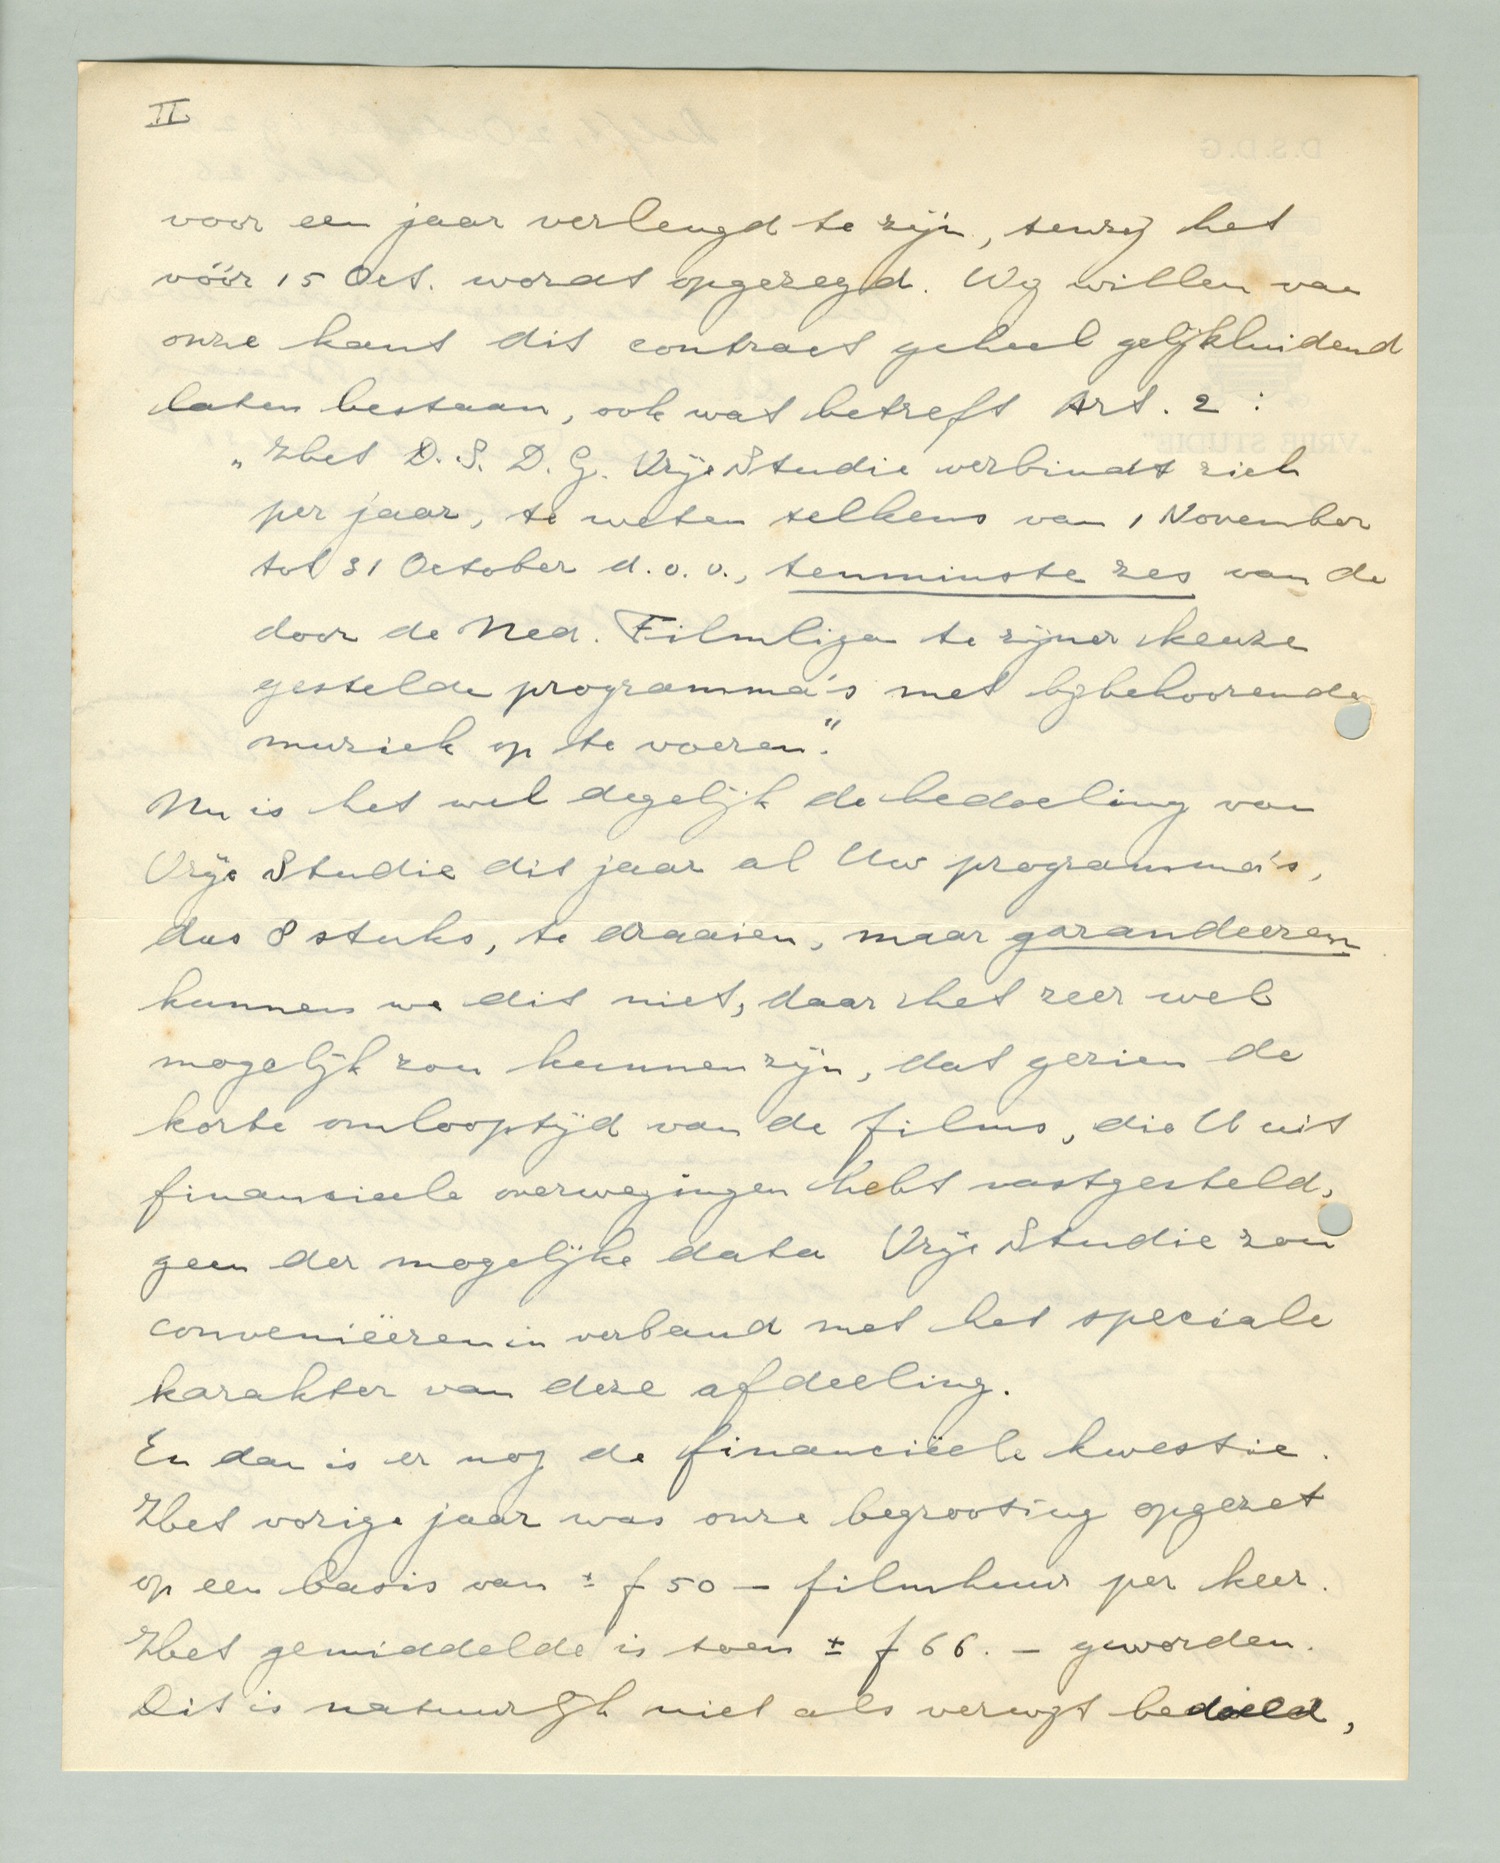 II
voor een jaar verlengd te zijn, tenzij het
vóór 15 Oct. wordt opgezegd. Wij willen van
onze kant dit contract geheel gelijkluidend
laten bestaan, ook wat betreft Art. 2 :
„Het D. S. D. G. Vrije Studie verbindt zich
per jaar, te weten telkens van 1 November
tot 31 October d.o.v., tenminste zes van de
door de Ned. Filmliga te zijner keuze
gestelde programma's met bijbehoorende
muziek op te voeren".
Nu is het wel degelijk de bedoeling van
Vrije Studie dit jaar al Uw programma's,
dus 8 stuks, te draaien, maar garandeeren
kunnen we dit niet, daar het zeer wel
mogelijk zou kunnen zijn, dat gezien de
korte omlooptijd van de films, die U uit
financieele overwegingen hebt vastgesteld,
geen der mogelijke data Vrije Studie zou
conveniëeren in verband met het speciale
karakter van deze afdeeling.
En dan is er nog de financiëele kwestie.
Het vorige jaar was onze begrooting opgezet
op een basis van ± f 50 – filmhuur per keer.
Het gemiddelde is toen ± f 66. – geworden.
Dit is natuurlijk niet als verwijt bedoeld,